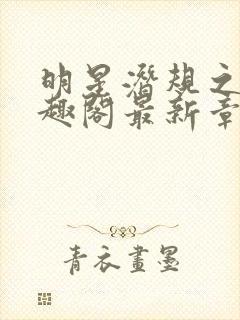 明星潜规之
趣阁最新章
青衣画墨